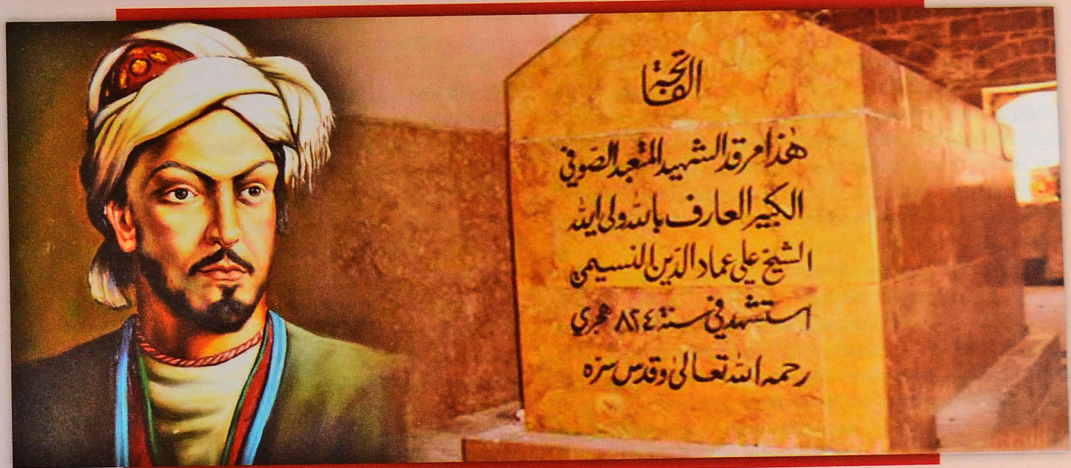 الفاتحة
هذا مرقد الشهيد المتعبد الصوفي
الكبير العارف بالله ولي الله
الشيخ علي عماد الدين النسيمي
استشهد في سنة ٨٢٤ هجري
رحمه الله تعالى وقدس سره